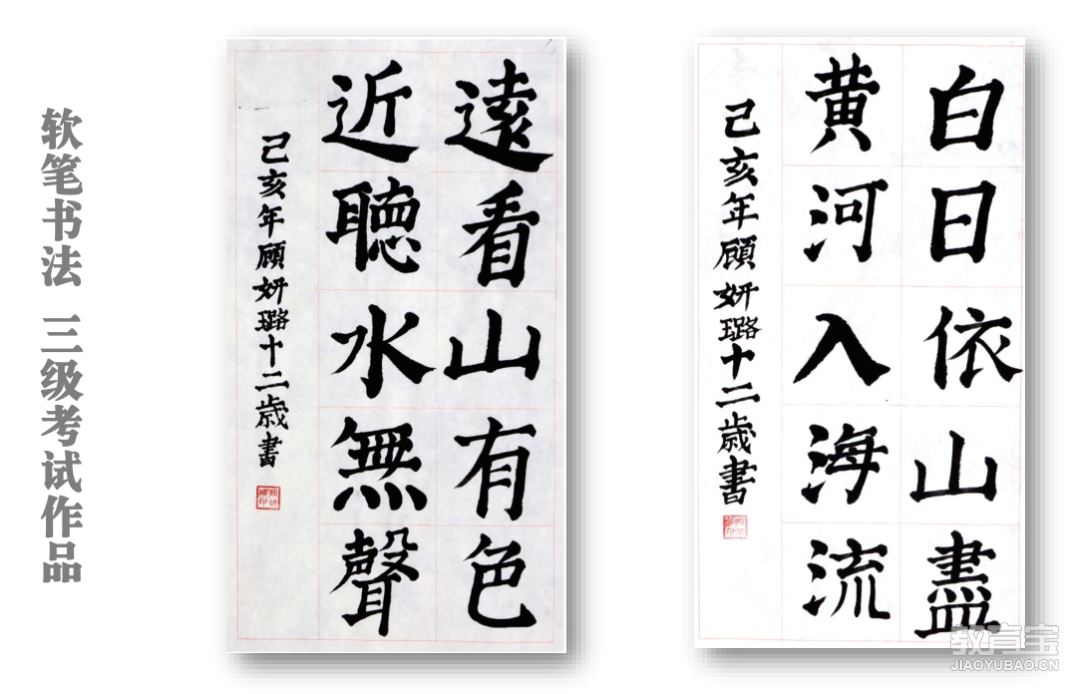 软笔书法 三级考试作品
遠看山有色
近聽水無聲
己亥年顾妍璐十二歳書
白日依山盡
黄河入海流
己亥年顾妍璐十二歳書
教育宝
JIAOYUBAO.CN